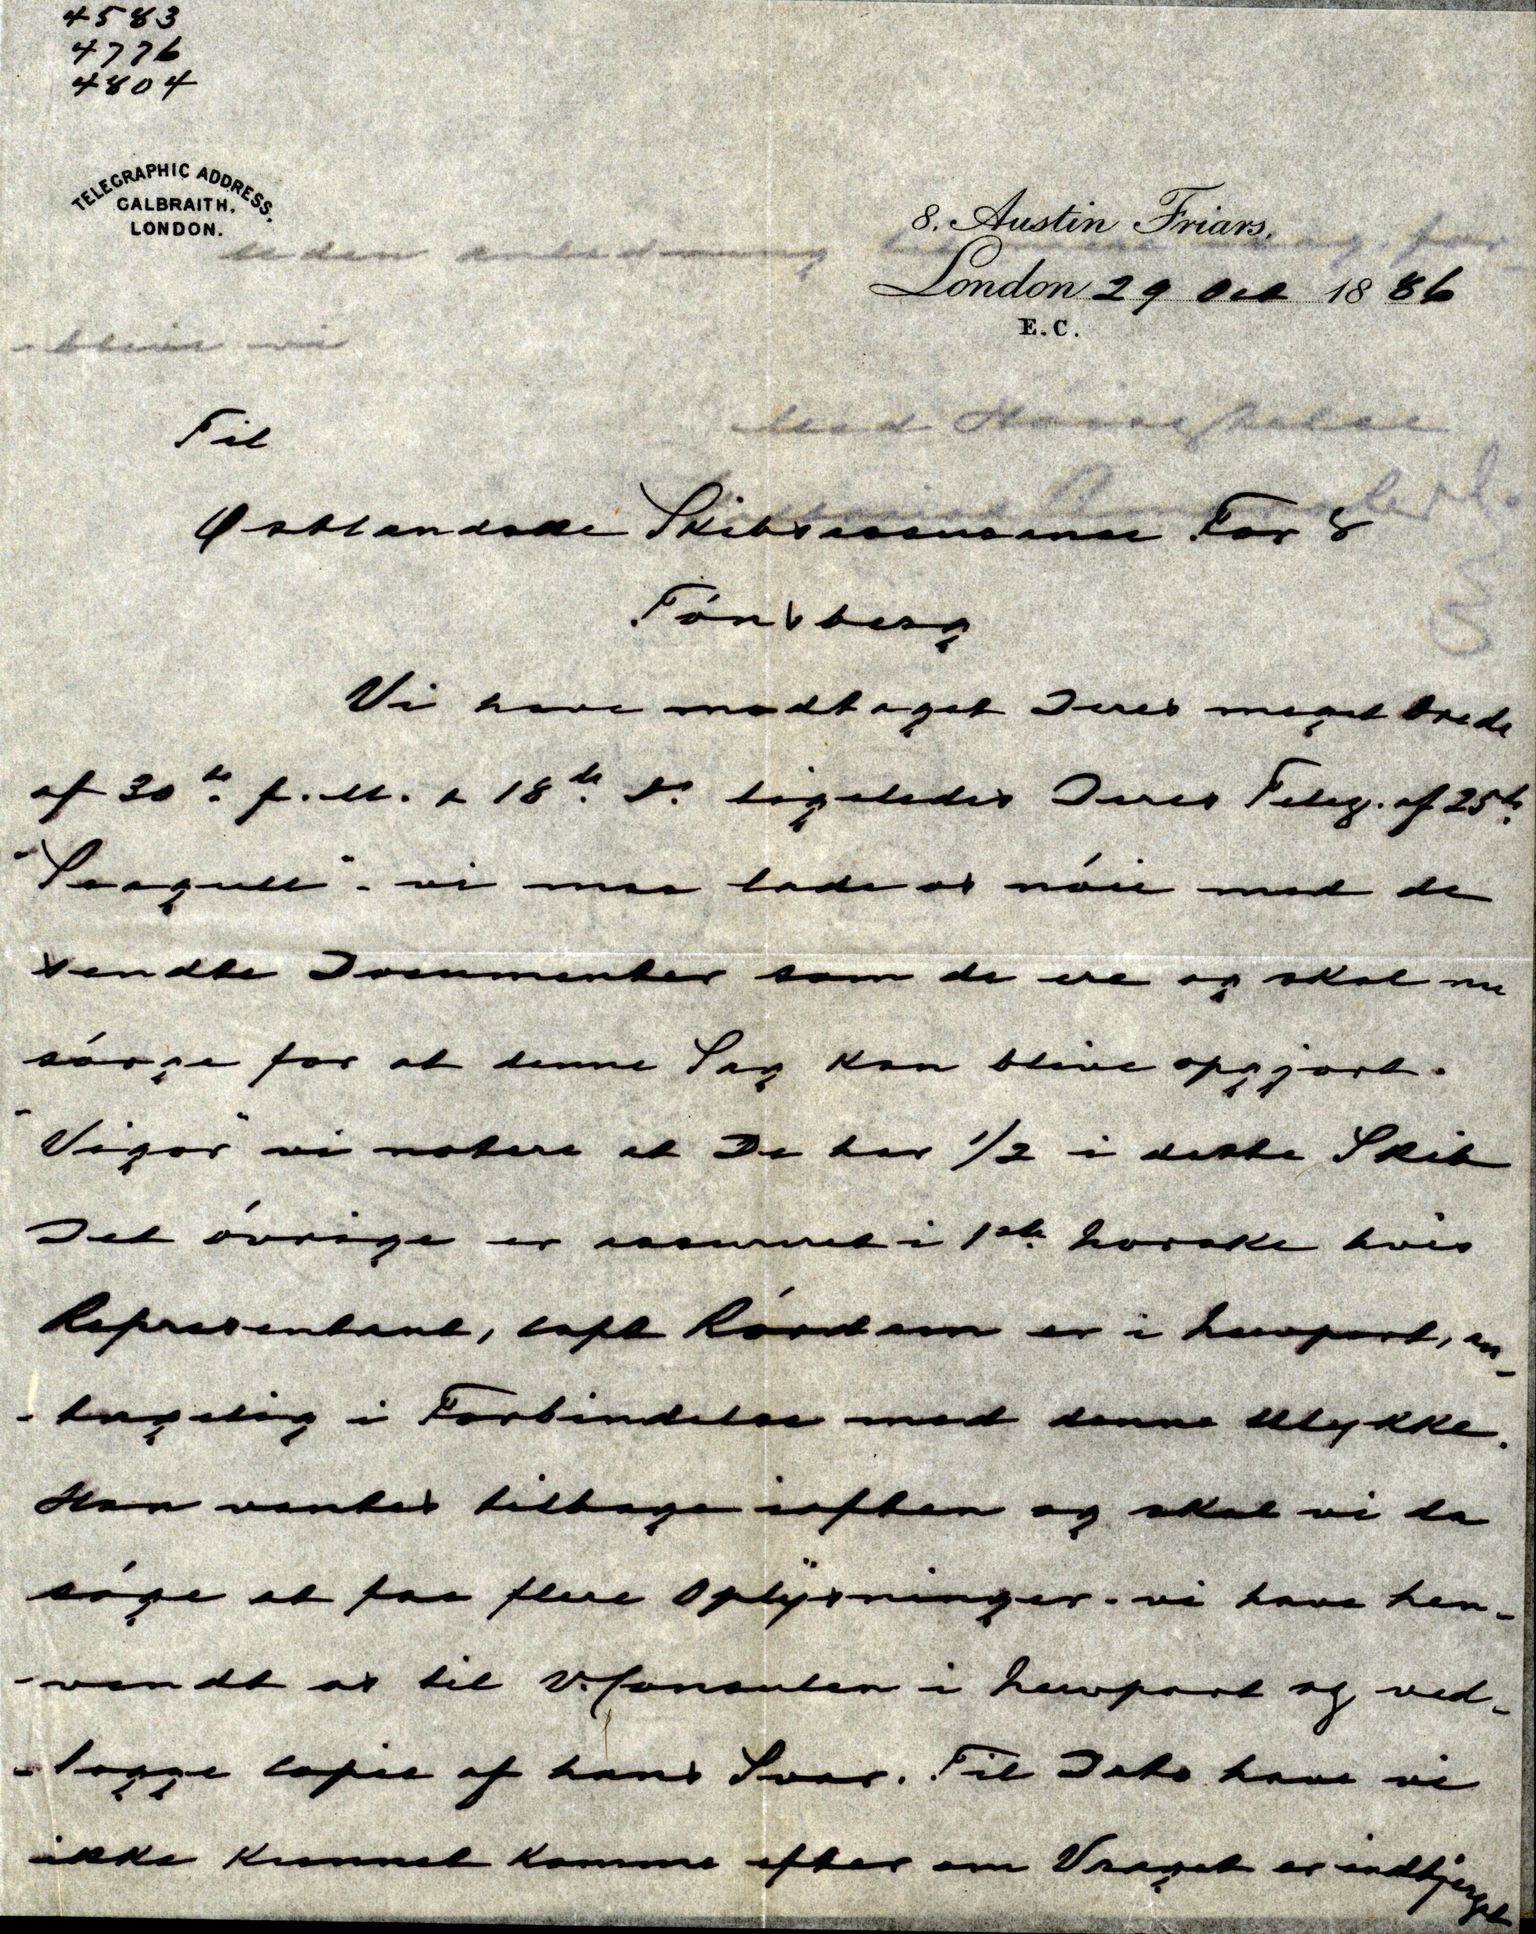 4583
4776
4804
TELEGRAPHIC ADDRESS.
GALBRAITH.
LONDON.
8. Austin Friars.
London 29 Oct 1886
E.C.
Til
Østlandske Skibsassurance For&
Tónsberg
Vi have modtaget Deres meget ærede
af 30te f.M. & 18de ds ligeledes Deres Teleg. af 25te
"Seagull" - vi maa lade os nóie med de
sendte Documenter som de ere og skal nu
sórge for at denne Sag kan blive opgjort.
"Vigor" vi notere at De har 1/2 i dette Skib
Det óvrige er assureret i 1ste Norske hvis
Representant, Capt Rórdam er i Newport, an-
-tagelig i Forbindelse med denne Ulykke.
Han ventes tilbage iaften og skal vi da
sóge at faa flere Oplÿsninger. vi have hen-
-vendt os til V.Consulen i Newport og ved-
-lægge Copie af hans Svar. Til Dato have vi
ikke kunnet komme efter om Vraget er indbjerget